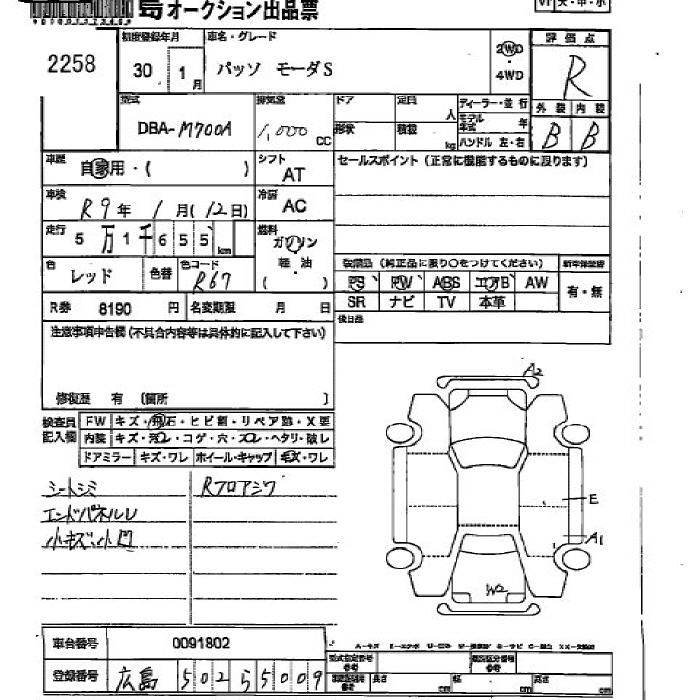 島オークション出品票
V1 大・中・小
2258
初度登録年月
30 1月
車名・グレード
パッソ モーダS
2WD
・
4WD
評価点
R
型式
DBA-M700A
排気量
1,000 CC
ドア
定員 人
形状
積載 kg
ディーラー・並行
モデル年式 年
ハンドル 左・右
外装 内装
B B
車歴
自家用・( )
シフト
AT
セールスポイント (正常に機能するものに限ります)
車検
R9年 1月(12日)
冷房
AC
走行
5万1千655km
燃料
ガソリン
軽・油
( )
色
レッド
色替
色コード
R67
装備品 (純正品に限り○をつけてください)
PS PW ABS エアB AW
SR ナビ TV 本革
新車保証書
有・無
R券 8190 円
名変期限 月 日
後日品
注意事項申告欄(不具合内容等は具体的に記入して下さい)
修復歴 有 〔箇所 〕
検査員記入欄
FW キズ・飛石・ヒビ割・リペア跡・X更
内装 キズ・汚レ・コゲ・穴・スレ・ヘタリ・破レ
ドアミラー キズ・ワレ ホイール・キャップ キズ・ワレ
シートシミ
エンドパネルU
小キズ、小凹
Rフロアシワ
A2
E
A1
W2
車台番号 0091802
登録番号 広島 502 ら 5009
型式指定番号
類別区分番号
長さ cm 幅 cm 高さ cm